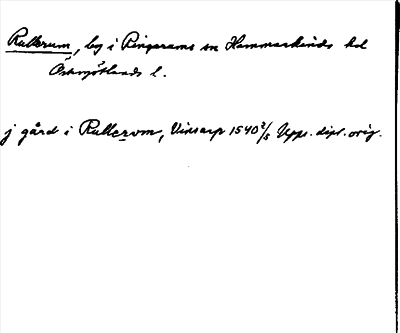 Rullerum, by i Ringarums sn Hammarkinds hd
Östergötlands l.
j gård i Rullerom, Vinsarp 1540 2/5 Upps. dipl. orig.